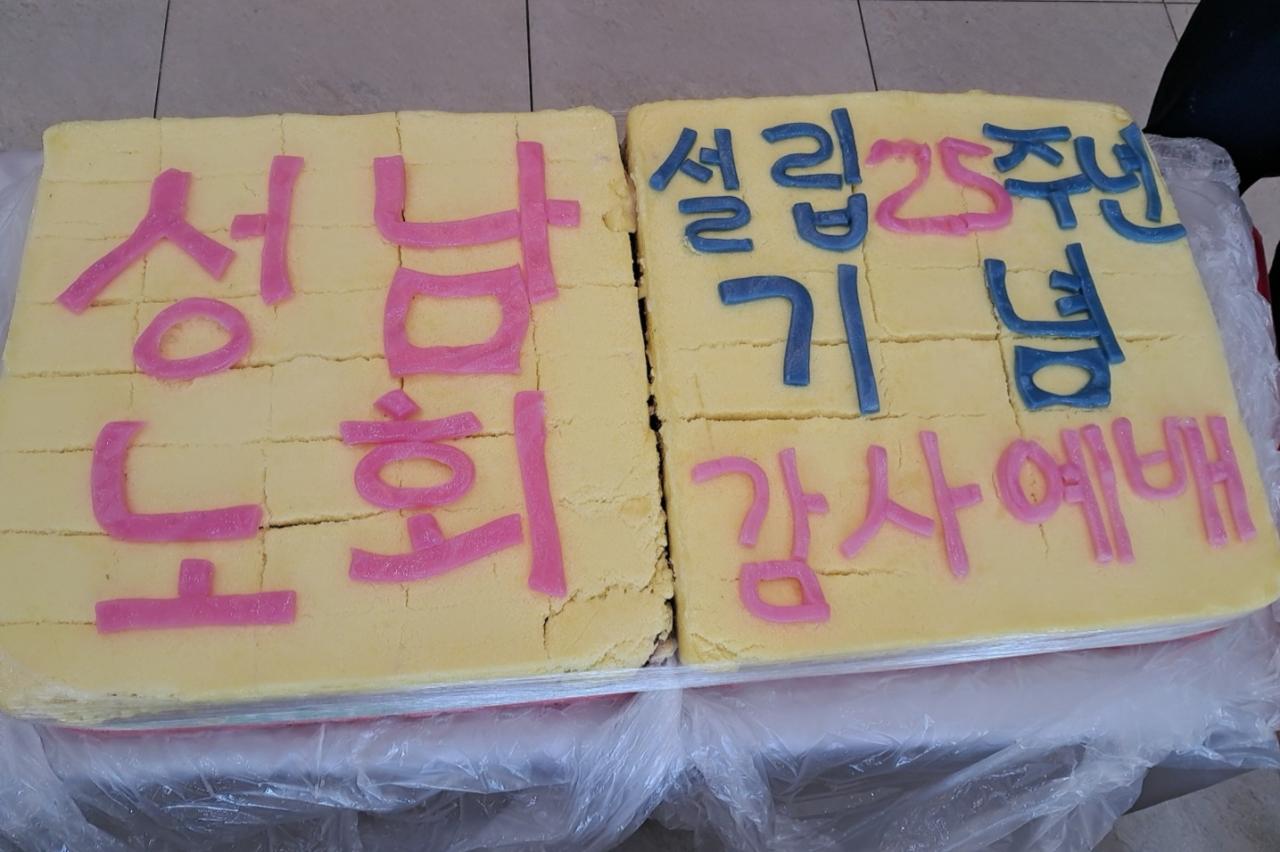 성남
노회
설립 25주년
기념
감사예배